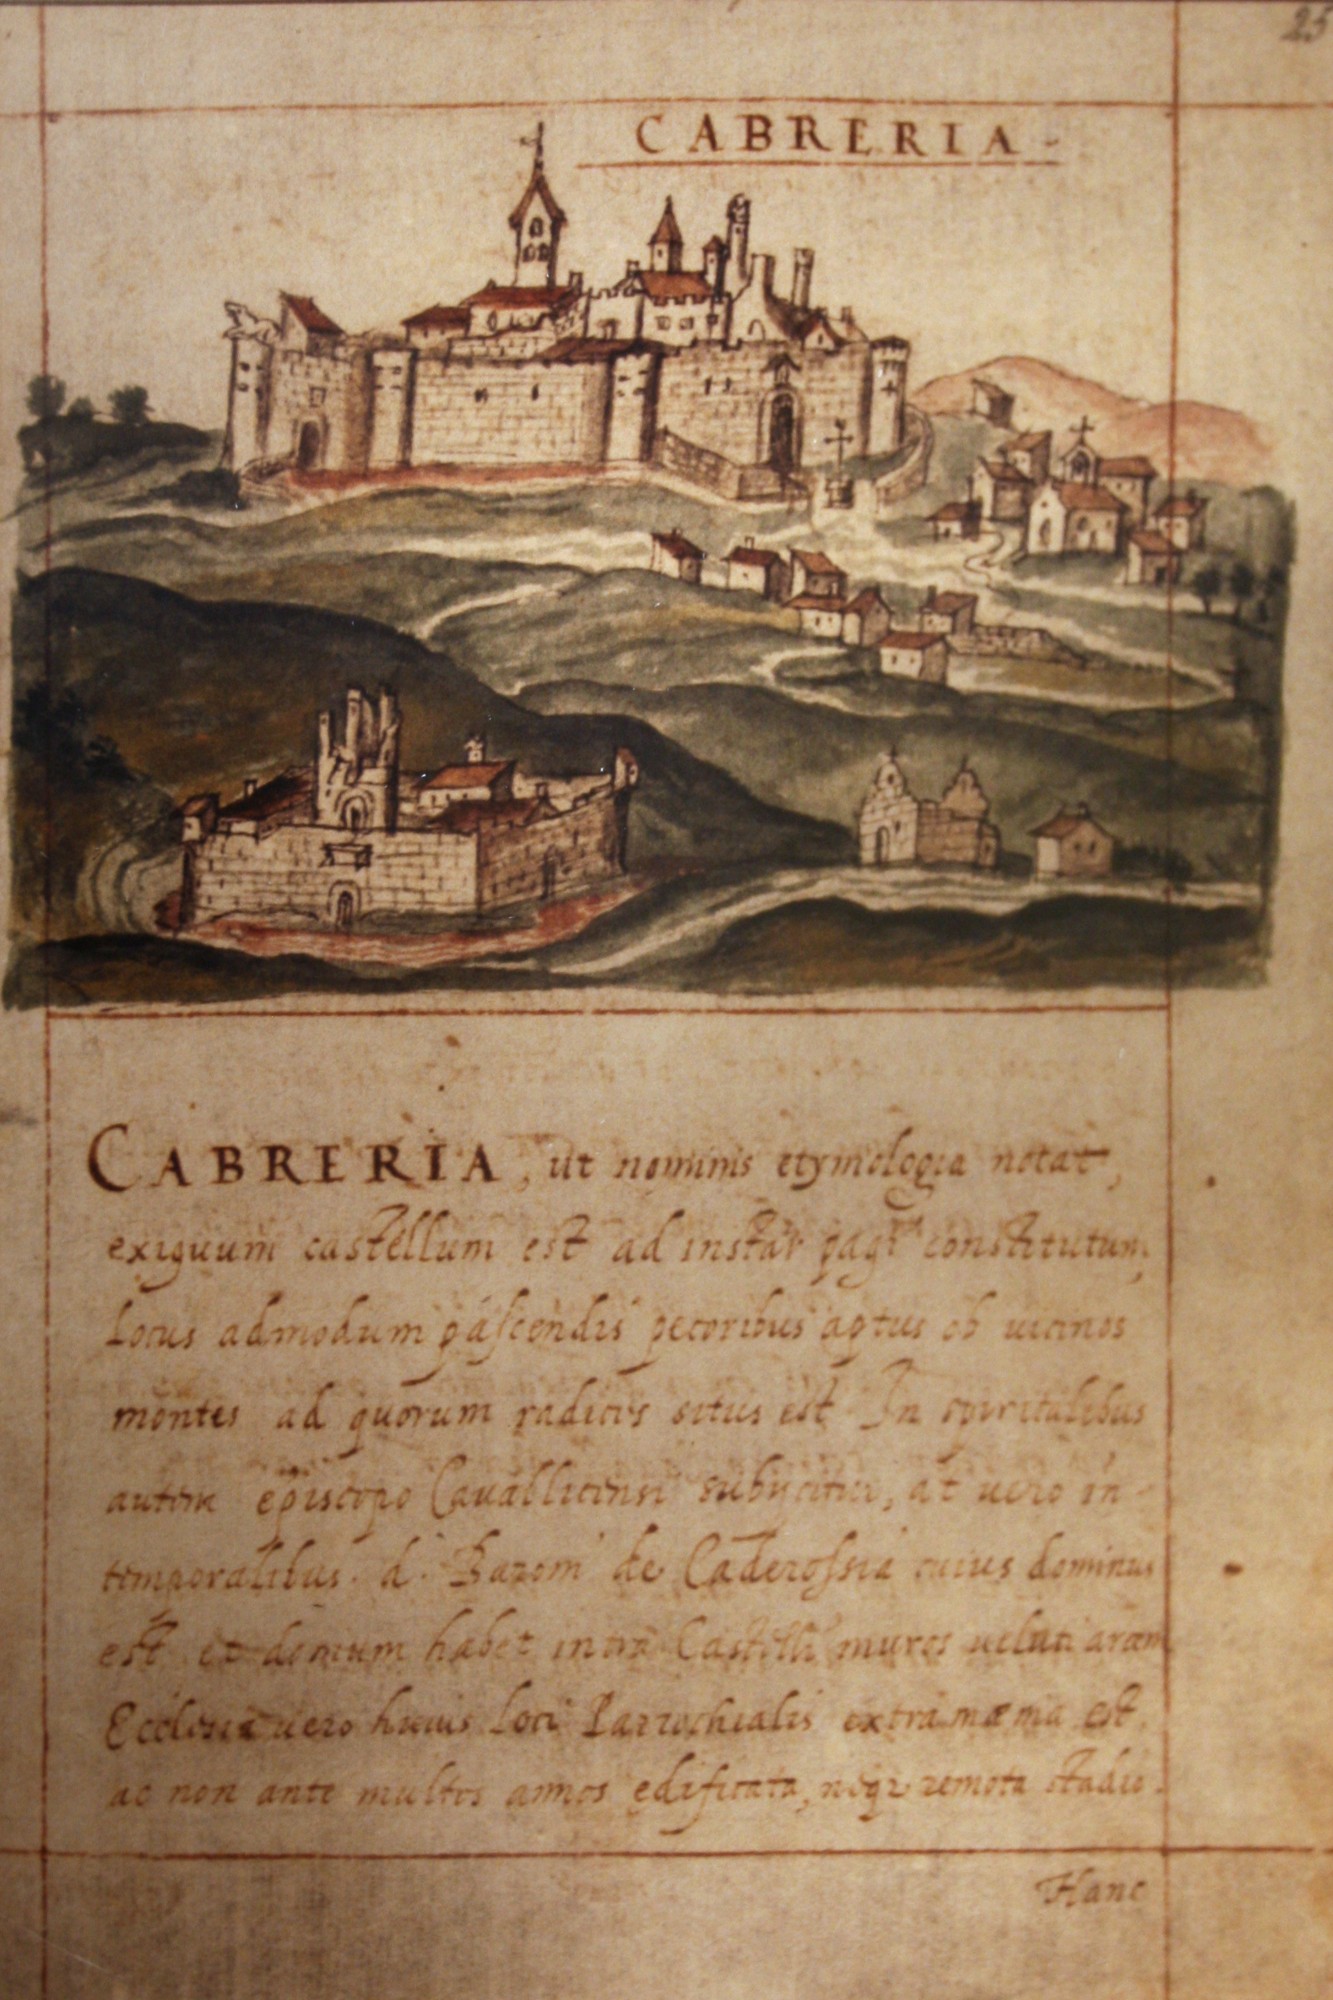 25
CABRERIA
CABRERIA, ut nominis etymologia notat,
exiguum castellum est ad instar pagi constitutum,
Locus admodum pascendis pecoribus aptus ob uicinos
montes ad quorum radicis situs est In spiritalibus
autem episcopo Cauallicensi subijcitur, at uero in
temporalibus d. Baroni de Caderossia cuius dominus
est et domum habet intra Castelli muros ueluti arcem
Ecclesia uero huius loci Parrochialis extra mænia est,
ac non ante multos annos edificata, neqz remota stadio.
Hanc